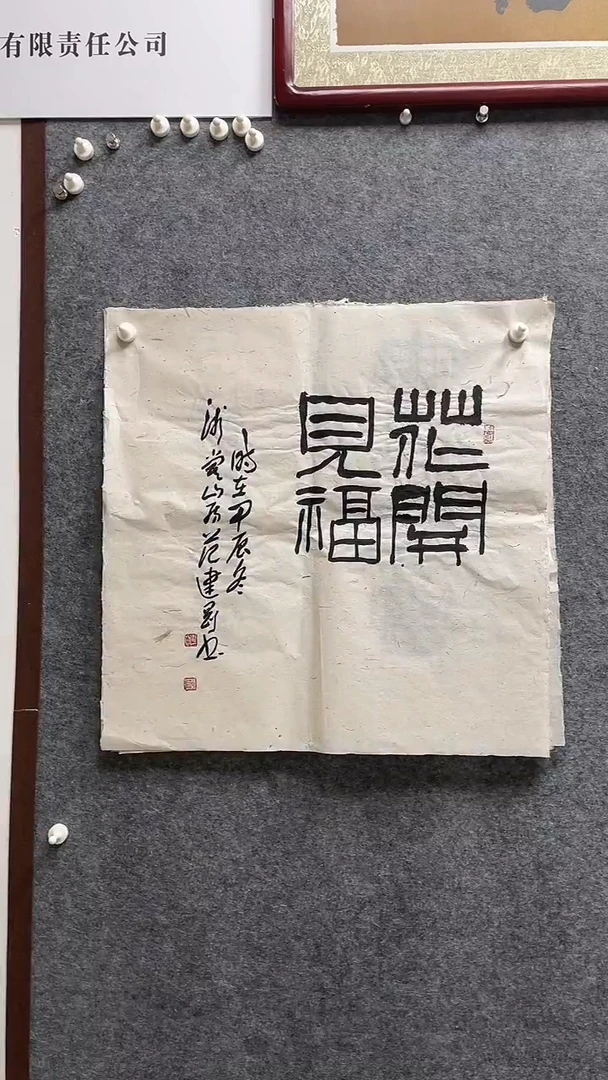 有限责任公司
花開
見福
時在甲辰冬
山房范建
书